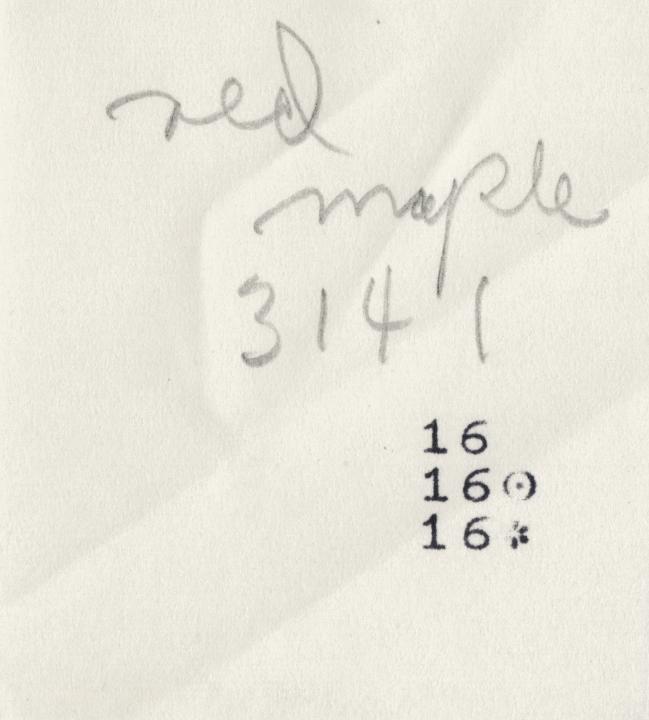 red
maple
3141
16
16⊙
16*